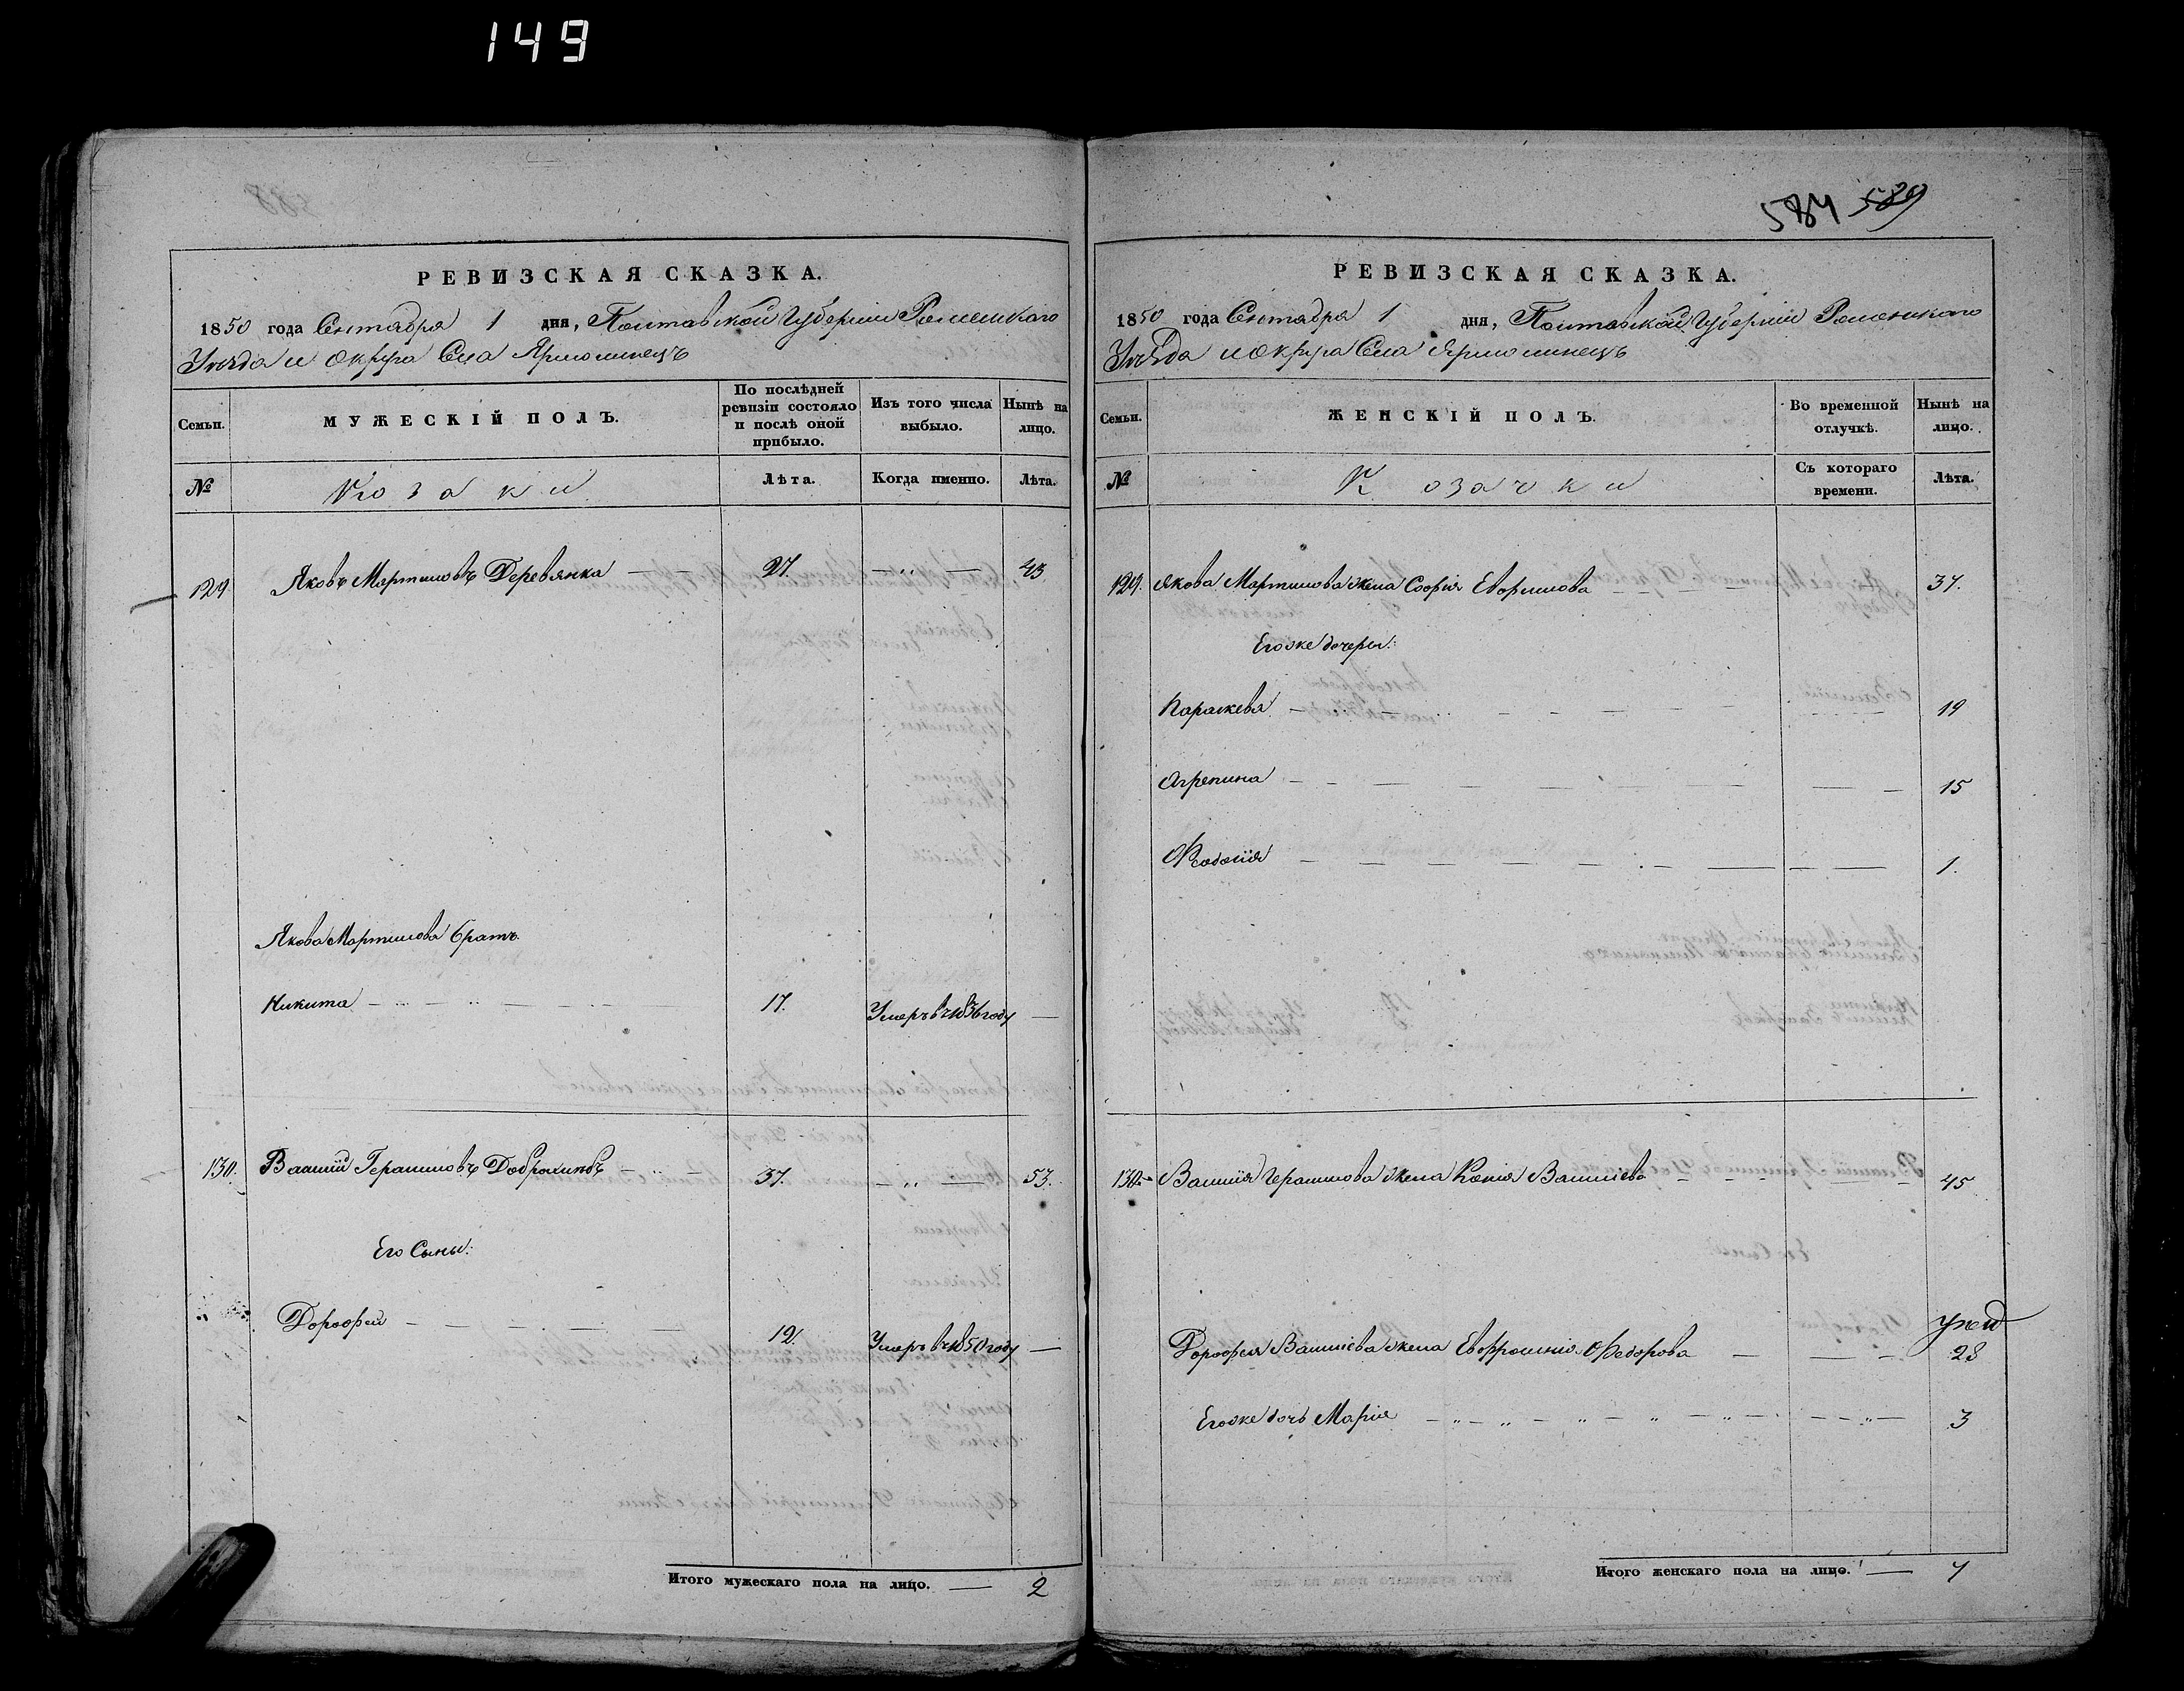 149
584 589
РЕВИЗСКАЯ СКАЗКА.
1850 года Сентября 1 дня, Полтавской Губернии Роменского
Уезда и округа Села Ярмолинець
Семьи.
МУЖЕСКІЙ ПОЛЪ.
По послѣдней ревизіи состояло и послѣ оной прибыло.
Изъ того числа выбыло.
Нынѣ на лицо.
№
Козаки
Лѣта.
Когда именно.
Лѣта.
129. Яковъ Мартиновъ Деревянка 27. 43
Якова Мартинова братъ
Никита 17. Умеръ в 1836 году
130. Василий Герасимовъ 37. 53.
Его Сыны:
Дорофей 12. Умеръ в 1850 году
Итого мужескаго пола на лицо. 2
РЕВИЗСКАЯ СКАЗКА.
1850 года Сентября 1 дня, Полтавской Губернии Роменского
Уезда и округа Села Ярмолинець
Семьи.
ЖЕНСКІЙ ПОЛЪ.
Во временной отлучкѣ.
Нынѣ на лицо.
№
Козачки
Съ котораго времени.
Лѣта.
129. Якова Мартинова жена Софія 37.
Его же дочеры:
Параскева 19
Агрепина 15
Феодосія 1.
130. Василия Герасимова жена Ксенія Василіева 45
Дорофея Василіева жена Евфросинія Федорова 28
Его же дочь Марія 3
Итого женскаго пола на лицо. 7